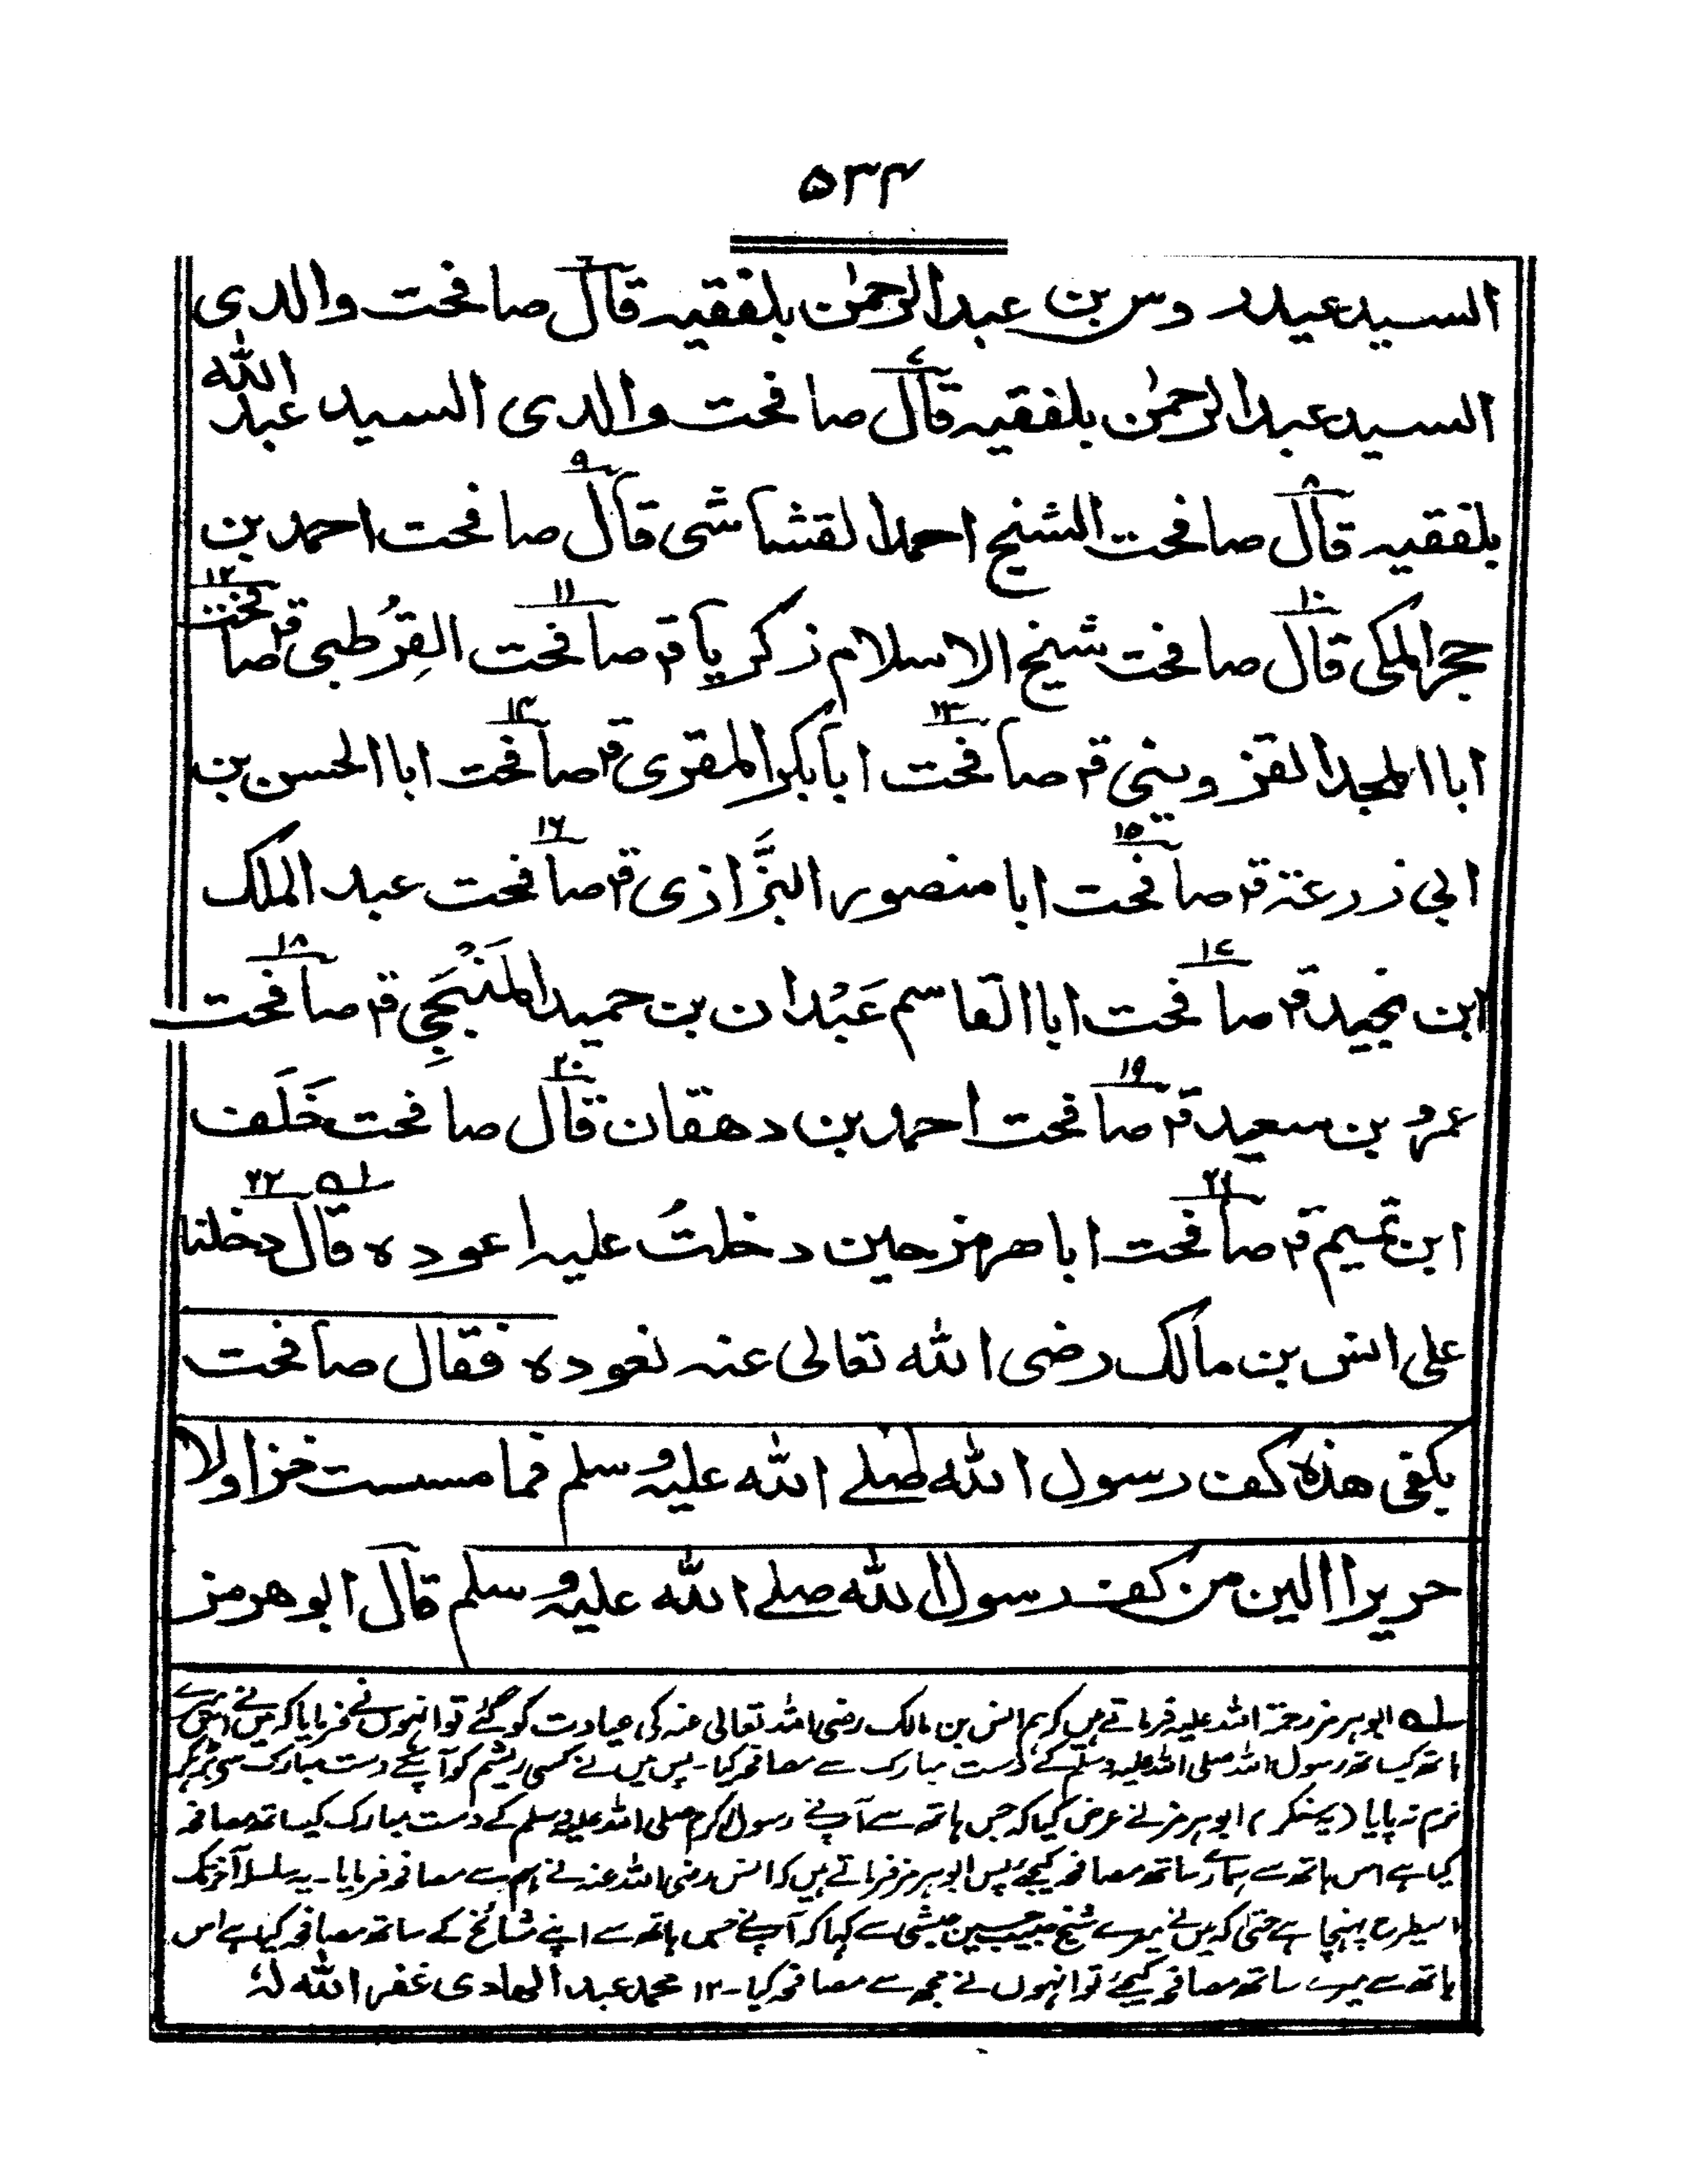 ۵۳۴
السید عیدروس بن عبدالرحمٰن بلفقیہ قال صافحت والدی
السید عبدالرحمٰن بلفقیہ قال صافحت والدی السید عبد اللّٰہ
بلفقیہ قال صافحت الشیخ احمد القشاشی قال صافحت احمد بن
حجر المکی قال صافحت شیخ الاسلام زکریا قہ صافحت القِرُطبی قہ صافحت
ابا المجد القزوینی قہ صافحت ابا بکر المقری قہ صافحت ابا الحسن بن
ابی زرعۃ قہ صافحت ابا منصور البَزَّازی قہ صافحت عبد الملک
ابن نجید قہ صافحت ابا القاسم عَبْدان بن حمید المَنْبَجِی قہ صافحت
عمرو بن سعید قہ صافحت احمد بن دھقان قال صافحت خَلَف
ابن تمیم قہ صافحت ابا ھرمز حین دخلتُ علیہ اعودہ قال دخلنا
علی انس بن مالک رضی اللّٰہ تعالی عنہ نعودہ فقال صافحت
بکفی ھذہ کف رسول اللّٰہ صلے اللّٰہ علیہ وسلم فما مسست خزا ولا
حریرا الین من کف رسول اللّٰہ صلے اللّٰہ علیہ وسلم قال ابو ھرمز
لہ ابوہرمز رحمۃ اللہ علیہ فرماتے ہیں کہ ہم انس بن مالک رضی اللہ تعالی عنہ کی عیادت کو گئے تو انہوں نے فرمایا کہ میں نے اپنے
ہاتھ کیساتھ رسول اللہ صلی اللہ علیہ وسلم کے دست مبارک سے مصافحہ کیا۔ پس میں نے کسی ریشم کو آپکے دست مبارک سے بڑھکر
نرم نہ پایا (یہ سنکر) ابوہرمز نے عرض کیا کہ جس ہاتھ سے آپنے رسول اکرم صلی اللہ علیہ وسلم کے دست مبارک کیساتھ مصافحہ
کیا ہے اس ہاتھ سے ہمارے ساتھ مصافحہ کیجئے پس ابوہرمز فرماتے ہیں کہ انس رضی اللہ عنہ نے ہم سے مصافحہ فرمایا۔ یہ سلسلہ آخر تک
اسیطرح پہنچا ہے حتیٰ کہ میں نے میرے شیخ حبیب حسین حبشی سے کہا کہ آپنے جس ہاتھ سے اپنے مشائخ کے ساتھ مصافحہ کیا ہے اس
ہاتھ سے میرے ساتھ مصافحہ کیجئے تو انہوں نے مجھ سے مصافحہ کیا۔ ۱۲ محمد عبد الھادی غفر اللّٰہ لہٗ